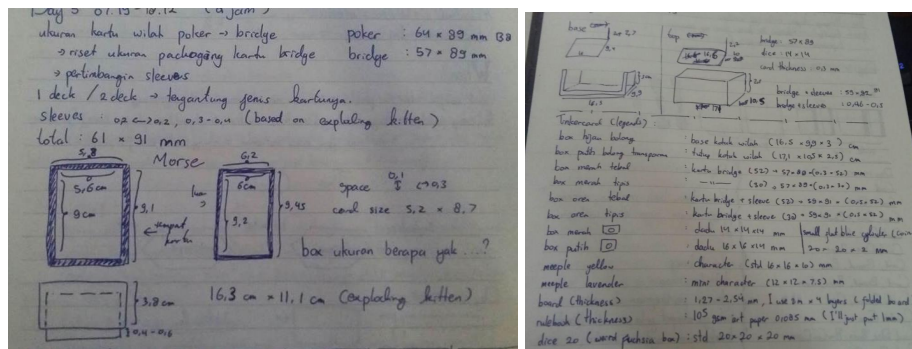 Day 5 07.15 - 18.12 (9 jam)
ukuran kartu wilah poker → bridge
poker : 64 × 89 mm
→ riset ukuran packaging kartu bridge
bridge : 57 × 89 mm
→ pertimbangin sleeves
1 deck / 2 deck → tergantung jenis kartunya.
sleeves : 0,2 ↔ 0,2, 0,3-0,4 (based on exploding kitten)
total : 61 × 91 mm
Morse
5,8
5,6cm
9cm
9,1
← tempat kartu
6,2
6cm
9,2
9,45
space 0,1 ↔ 0,3
card size 5,2 × 8,7
box ukuran berapa yak ...?
3,8 cm
0,4 - 0,6
16,3 cm × 11,1 cm (exploding kitten)
base
top
bridge : 57×89
dice : 14×14
card thickness : 0,3 mm
bridge + sleeves : 59×92
10.5
Tinkercard (legends) :
box hijau bolong : base kotak wilah (16.5 × 9,9 × 3) cm
box putih bolong transparan : tutup kotak wilah (17,1 × 10,5 × 2,5) cm
box merah tebal : kartu bridge (52) = 57 × 89 × (0.3 × 52) mm
box merah tipis
box oren tebal : kartu bridge + sleeve (52) = 59 × 91 × (0,5 × 52) mm
box oren tipis : kartu bridge + sleeve
box merah : dadu 14 × 14 × 14 mm
small flat blue cylinder (coin
box putih : dadu 16 × 16 × 14 mm
20 × 20 × 2 mm
meeple yellow : character (std 16 × 16 × 10) mm
meeple lavender : mini character (12 × 12 × 7.5) mm
board (thickness) : 1,27 - 2,54 mm, I use 2m × 4 layers (folded board
rulebook (thickness) : 105 gsm art paper 0.1085 mm (I'll just put 1mm)
dice 20 (weird fuchsia box) : std 20 × 20 × 20 mm